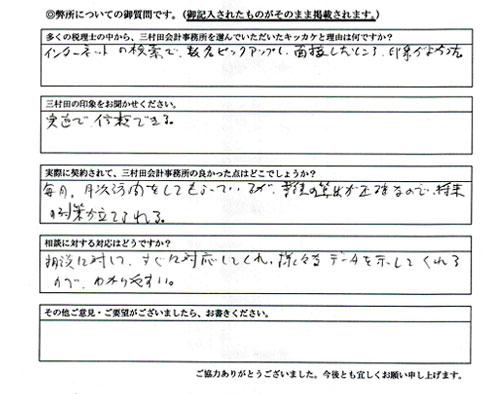 ◎弊所についての御質問です。（御記入されたものがそのまま掲載されます。）
多くの税理士の中から、三村田会計事務所を選んでいただいたキッカケと理由は何ですか?
インターネットの検索で、数名ピックアップし、面接したところ、印象がよかった
三村田の印象をお聞かせください。
実直で、信頼できる。
実際に契約されて、三村田会計事務所の良かった点はどこでしょうか?
毎月、月次訪問をしてもらっているが、 が正確なので、将来
の対策が立てられる。
相談に対する対応はどうですか?
相談に対して、すぐに対応してくれ、様々な データを示してくれる
ので、わかりやすい。
その他ご意見・ご要望がございましたら、お書きください。
ご協力ありがとうございました。今後とも宜しくお願い申し上げます。